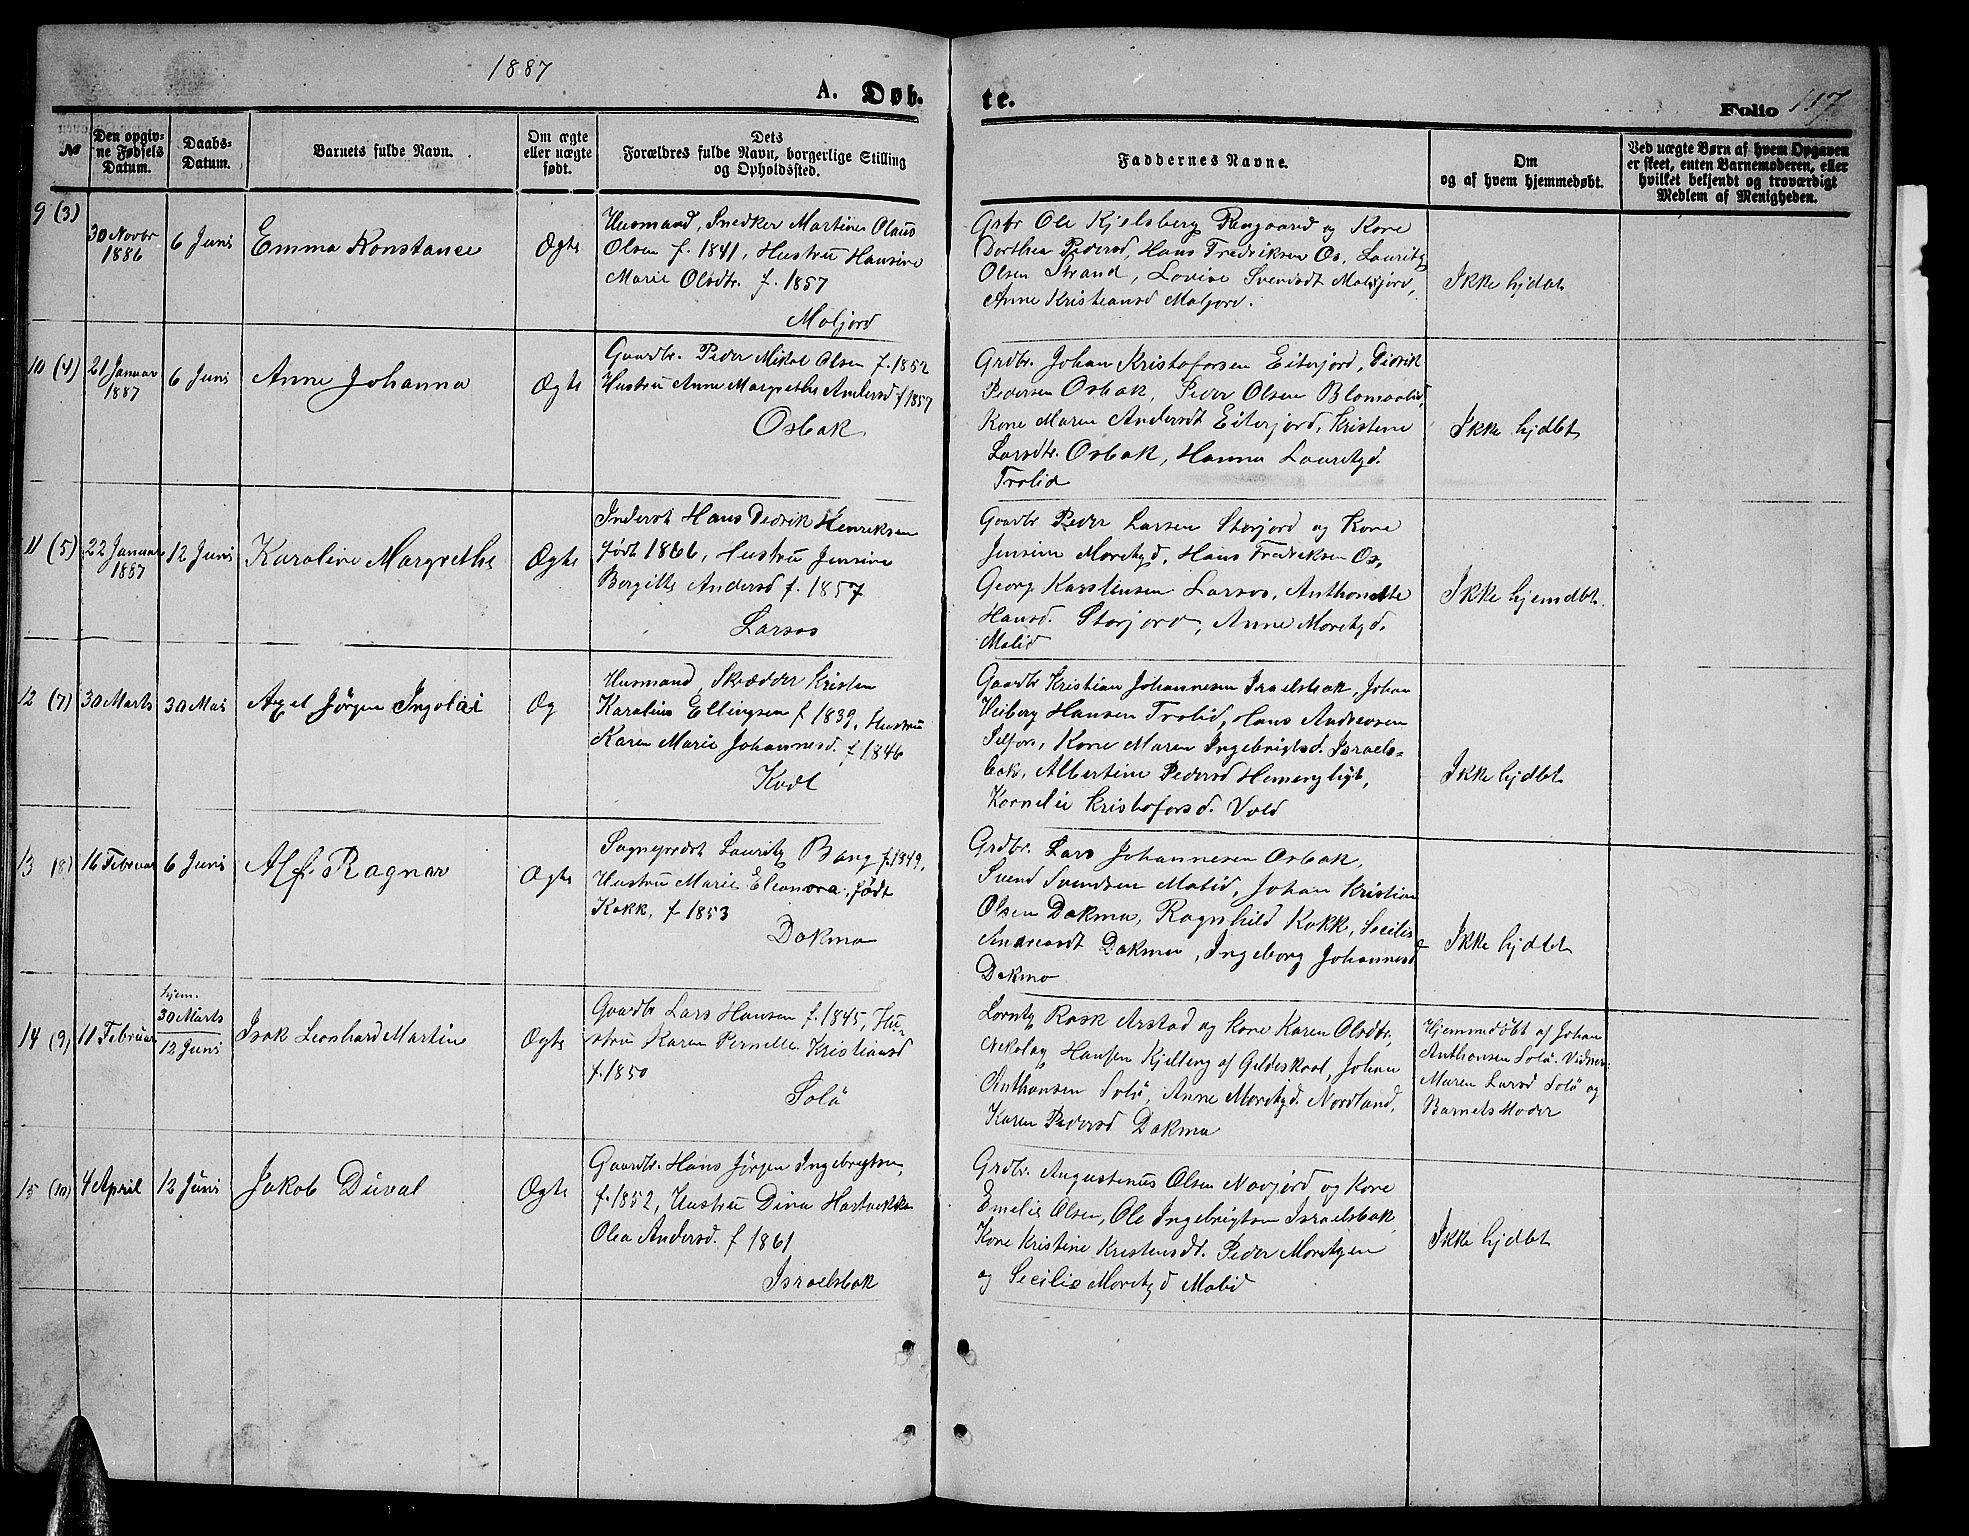 1887
A. Døb-
te.
Folio 117
No
Den opgiv-
ne Fødsels
Datum.
Daabs-
Datum.
Barnets fulde Navn.
Om ægte
eller uægte
født.
Dets
Forældres fulde Navn, borgerlige Stilling
og Opholdssted.
Faddernes Navne.
Om
og af hvem hjemmedøbt.
Ved uægte Børn af hvem Opgaven
er skeet, enten Barnemoderen, eller
hvilket bekjendt og troværdigt
Medlem af Menigheden.
9 (3)
30 Novbr
1886
6 Juni
Emma Konstance
Ægte
Husmand, Snedker Martines Olaus
Olsen f. 1841, Hustru Hansine
Marie Olsdtr. f. 1857
Moljord
Grbr Ole Kjelsberg og Kone
Dorthea Pedersd, Hans Fredriksen Os, Lauritz
Olsen Strand, Lovise Svendsdt Moldjord,
Anne Kristiansd Moljord.
Ikke hjdbt
10 (4)
21 Januar
1887
6 Juni
Anne Johanna
Ægte
Gaardbr. Peder Mikal Olsen f. 1852
Hustru Anne Margrethe Andersd f 1857
Osbak
Grdbr. Johan Kristofersen Eiterjord, Didrik
Pedersen Osbak, Peder Olsen
Kone Maren Andersdt Eiterjord, Kristine
Larsdtr. Osbak, Hanna Lauritzd.
Trolid
Ikke hjdbt
11 (5)
22 Januar
1887
12 Juni
Karoline Margrethe
Ægte
Inderst Hans Dedrik Henriksen
født 1866, Hustru Jensine
Bergitte Andersd f. 1857
Larsos
Gaardbr Peder Larsen Storjord og Kone
Jensine Moretzd, Hans Fredriksen Os,
Georg Karstensen Larsos, Anthonette
Hansd. Storjord, Anne Moretzd.
Molid
Ikke hjemdbt.
12 (7)
30 Marts
30 Mai
Axel Jörgen Ingolai
Æg
Husmand, Skrædder Kristen
Karolius Ellingsen f 1839, Hustru
Karen Marie Johannesd. f 1846
Kvdl
Gaardbr Kristian Johannesen Israelsbak, Johan
Heiberg Hansen Trolid, Hans Andreasen
Selfors, Kone Maren Ingebrigtsd. Israels-
bak, Albertine Pedersd Hemengligt,
Kornelie Kristofersd. Vold
Ikke hjdbt
13 (8)
16 Februar
6 Juni
Alf. Ragnar
Ægte
Sogneprest Lauritz Bang f. 1849,
Hustru Marie Eleonora, født
Kokk, f 1853
Dokmo
Grdbr. Lars Johannesen Osbak,
Svend Svendsen Molid, Johan Kristian
Olsen Dokmo, Ragnhild Kokk, Secilie
Andreasdt Dokmo, Ingeborg Johannesd
Dokmo
Ikke hjdbt
14 (9)
11 Februar
hjem.
30 Marts
12 Juni
Isak Leonhard Martin
Ægte
Gaardbr Lars Hansen f. 1845, Hu-
stru Karen Pernille Kristiansd
f. 1850
Solö
Lorntz Rask Arstad og Kone Karen Olsdtr.
Nikolay Hansen Kjelling af Gildeskaal, Johan
Anthonsen Solö, Anne Moretzd. Nordland,
Karen Pedersd Dokmo
Hjemmedöbt af Johan
Anthonsen Solö. Vidner
Maren Larsd Solö og
Barnets Moder
15 (10)
4 April
12 Juni
Jakob Duval
Ægte
Gaardbr. Hans Jørgen Ingebrigtsn,
f. 1852, Hustru Dina Hartvikka
Olea Andersd. f 1861
Israelsbak
Grdbr. Augustinus Olsen Novjord og Kone
Emelie Olsen, Ole Ingebrigtsen Israelsbak
Kone Kristine Kristensdt. Peder Moretzen
og Secilie Moretzd Molid
Ikke hjdbt